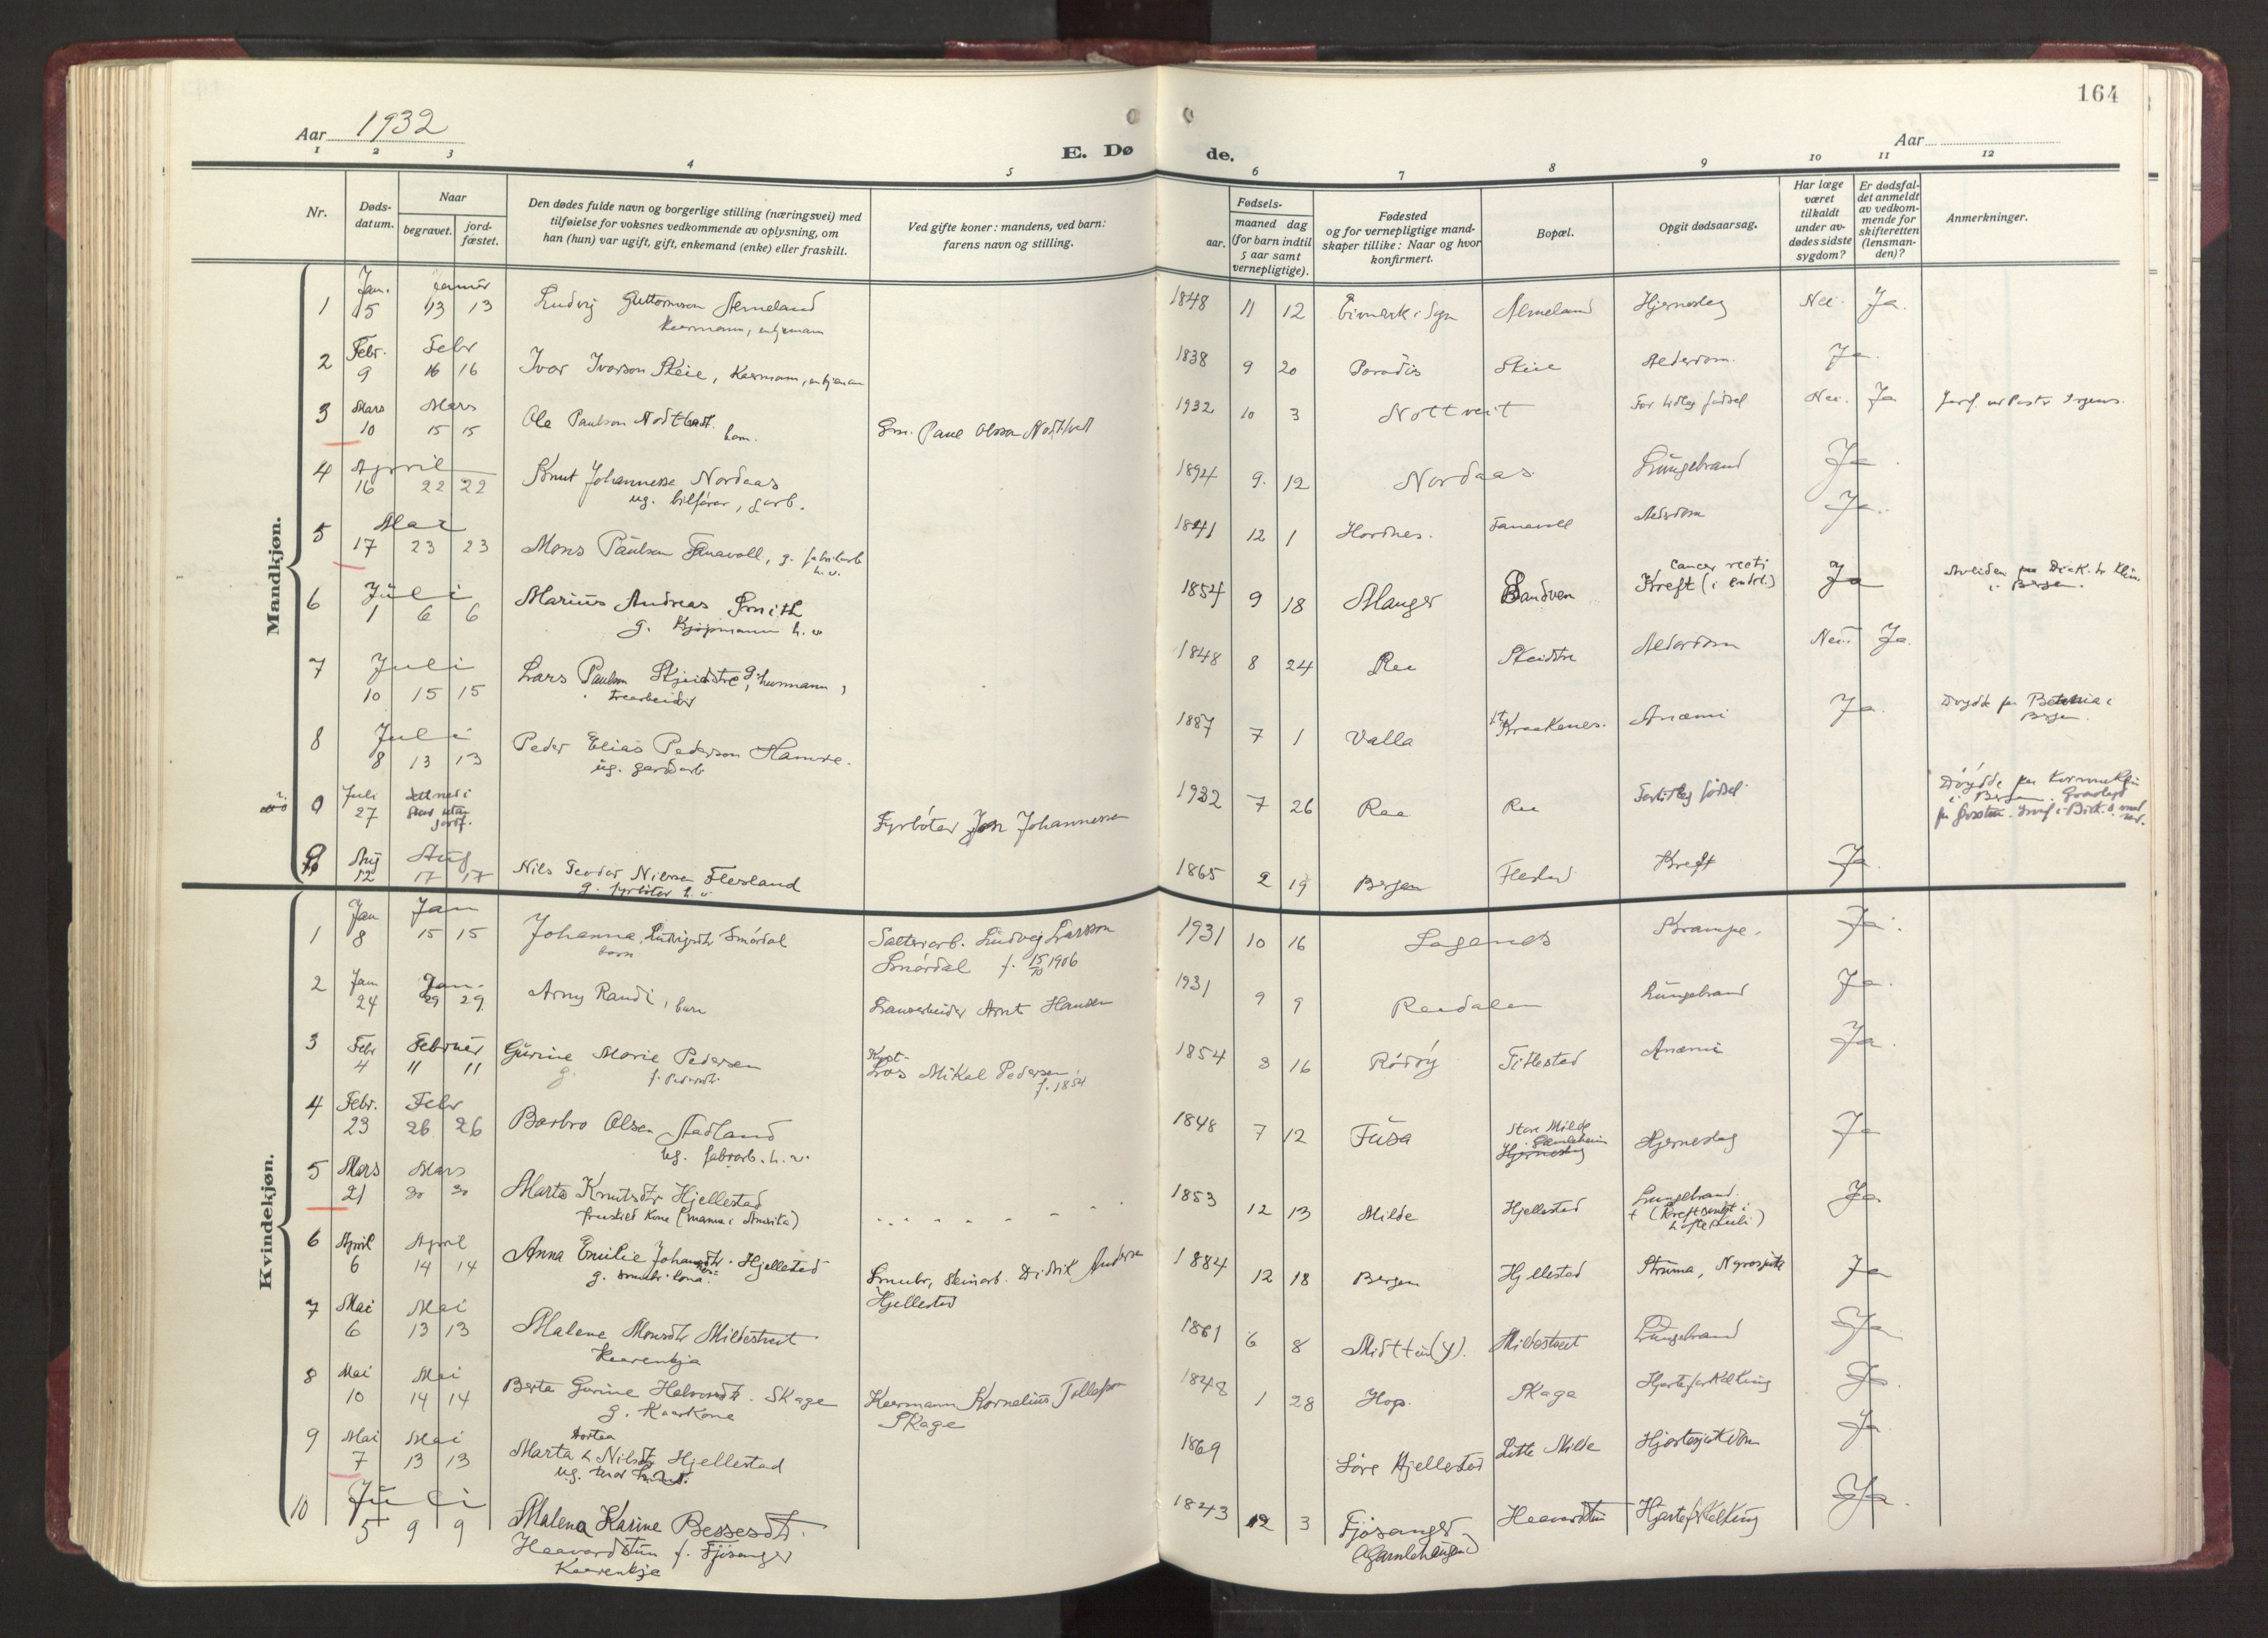 164
Aar 1932
Aar
E. Dø de.
1 2 3 4 5 6 7 8 9 10 11 12
Nr.
Døds-
datum.
Naar
begravet.
jord-
fæstet.
Den dødes fulde navn og borgerlige stilling (næringsvei) med
tilføielse for voksnes vedkommende av oplysning, om
han (hun) var ugift, gift, enkemand (enke) eller fraskilt.
Ved gifte koner: mandens, ved barn:
farens navn og stilling.
Fødsels-
aar.
maaned dag
(for barn indtil
5 aar samt
vernepligtige).
Fødested
og for vernepligtige mand-
skaper tillike: Naar og hvor
konfirmert.
Bopæl.
Opgit dødsaarsag.
Har læge
været
tilkaldt
under av-
dødes sidste
sygdom?
Er dødsfal-
det anmeldt
av vedkom-
mende for
skifteretten
(lensman-
den)?
Anmerkninger.
Mandkjøn.
1 Jan. 15 Januar 13 13 Ludvig Guttormson 1848 11 12 Hjerneslag Nei. Ja.
2 Febr. 9 Febr 16 16 Ivar Ivarson Skeie, Kaarmann, enkjemann 1838 9 20 Paradis Skeie Alderdom Ja.
3 Mars 10 Mars 15 15 Ole Paulson 1932 10 3 Nottveit For tidleg fødsel Nei. Ja
barn. Paul Olsson
4 April 16 22 22 Knut Johannesse Nordaas 1894 9. 12 Nordaas Lungebrand Ja
ug. bilførar, garb.
5 Mai 17 23 23 Mons Paulson Fanavoll, g. fabrikarb. 1841 12 1 Hordnes. Fanavoll Alderdom Ja.
h. v.
6 Juli 1 6 6 Marius Andreas Smith 1854 9 18 Manger Sandven cancer recti Ja
g. Kjøpmann h. v Kreft (i endet.) i Bergen.
7 Juli 10 15 15 Lars Paulson Skjeidstre, g. husmann, 1848 8 24 Ree Skeidstre Alderdom Nei. Ja.
trearbeider
8 Juli 8 13 13 Peder Elias Pederson Hamre. 1887 7 1 Valla Kraakenes. Anæmi Ja. Døydde på Betania i
ug. gardarb Bergen.
9 Juli 27 Fyrbøter Johannessen 1932 7 26 Rea Ree For tidleg fødsel. Døydde paa
i Bergen.
10 Aug 12 Aug 17 17 Nils Teodor Nilsen Flesland 1865 2 19 Bergen Flesland Kreft Ja
g. fyrbøter h. v.
Kvindekjøn.
1 Jan 8 Jan 15 15 Johanna Ludvigsdtr Smørdal Ludvig Larsson 1931 10 16 Lagenes Krampe. Ja.
barn Smørdal f. 15/10 1906
2 Jan 24 Jan. 29 29. Arny Randi, barn Arnt Hansen 1931 9 9 Readalen Lungebrand Ja.
3 Febr 4 Februar 11 11 Gurine Marie Pedersen Kyst- 1854 3 16 Rødøy Titlestad Anæmi Ja.
g. Los Mikal Pedersen, f. 1854
4 Febr. 23 Febr 26 26 Barbro Olsen Stadland 1848 7 12 Fusa Store Milde Hjerneslag Ja
ug. fabrarb. h. v. Hjerneslag
5 Mars 21 Mars 30 30 Marta Knutsdtr Hjellestad 1853 12 13 Milde Hjellestad Lungebrand. Ja
fraskild Kone (mann i Amerika)
6 April 6 April 14 14 Anna Emilie Johansdtr. Hjellestad Didrik Andersen 1884 12 18 Bergen Hjellestad Struma, Nyresjuke Ja
Hjellestad
7 Mai 6 Mai 13 13 Malene Monsdtr Mildestveit 1861 6 8 Midttun(Y). Mildestveit Lungebrand Ja
Kaarenkja
8 Mai 10 Mai 14 14 Berta Gurine Halvorsdtr. Skage Kaarmann Kornelius Tollefson 1848 1 28 Hop. Skage Hjarteforkalking Ja.
g. Kaarkone Skage
9 Mai 7 Mai 13 13 Marta Nilsdtr Hjellestad 1869 Søre Hjellestad Litle Milde Hjartesjukdom Ja
10 Juli 5 9 9 Malena Karine Bessesdtr. 1843 12 3 Fjøsanger Haavardstun Hjarteforkalking Ja.
Haavardstun f. Fjøsanger (Gamlehaugen)
Kaarenkje